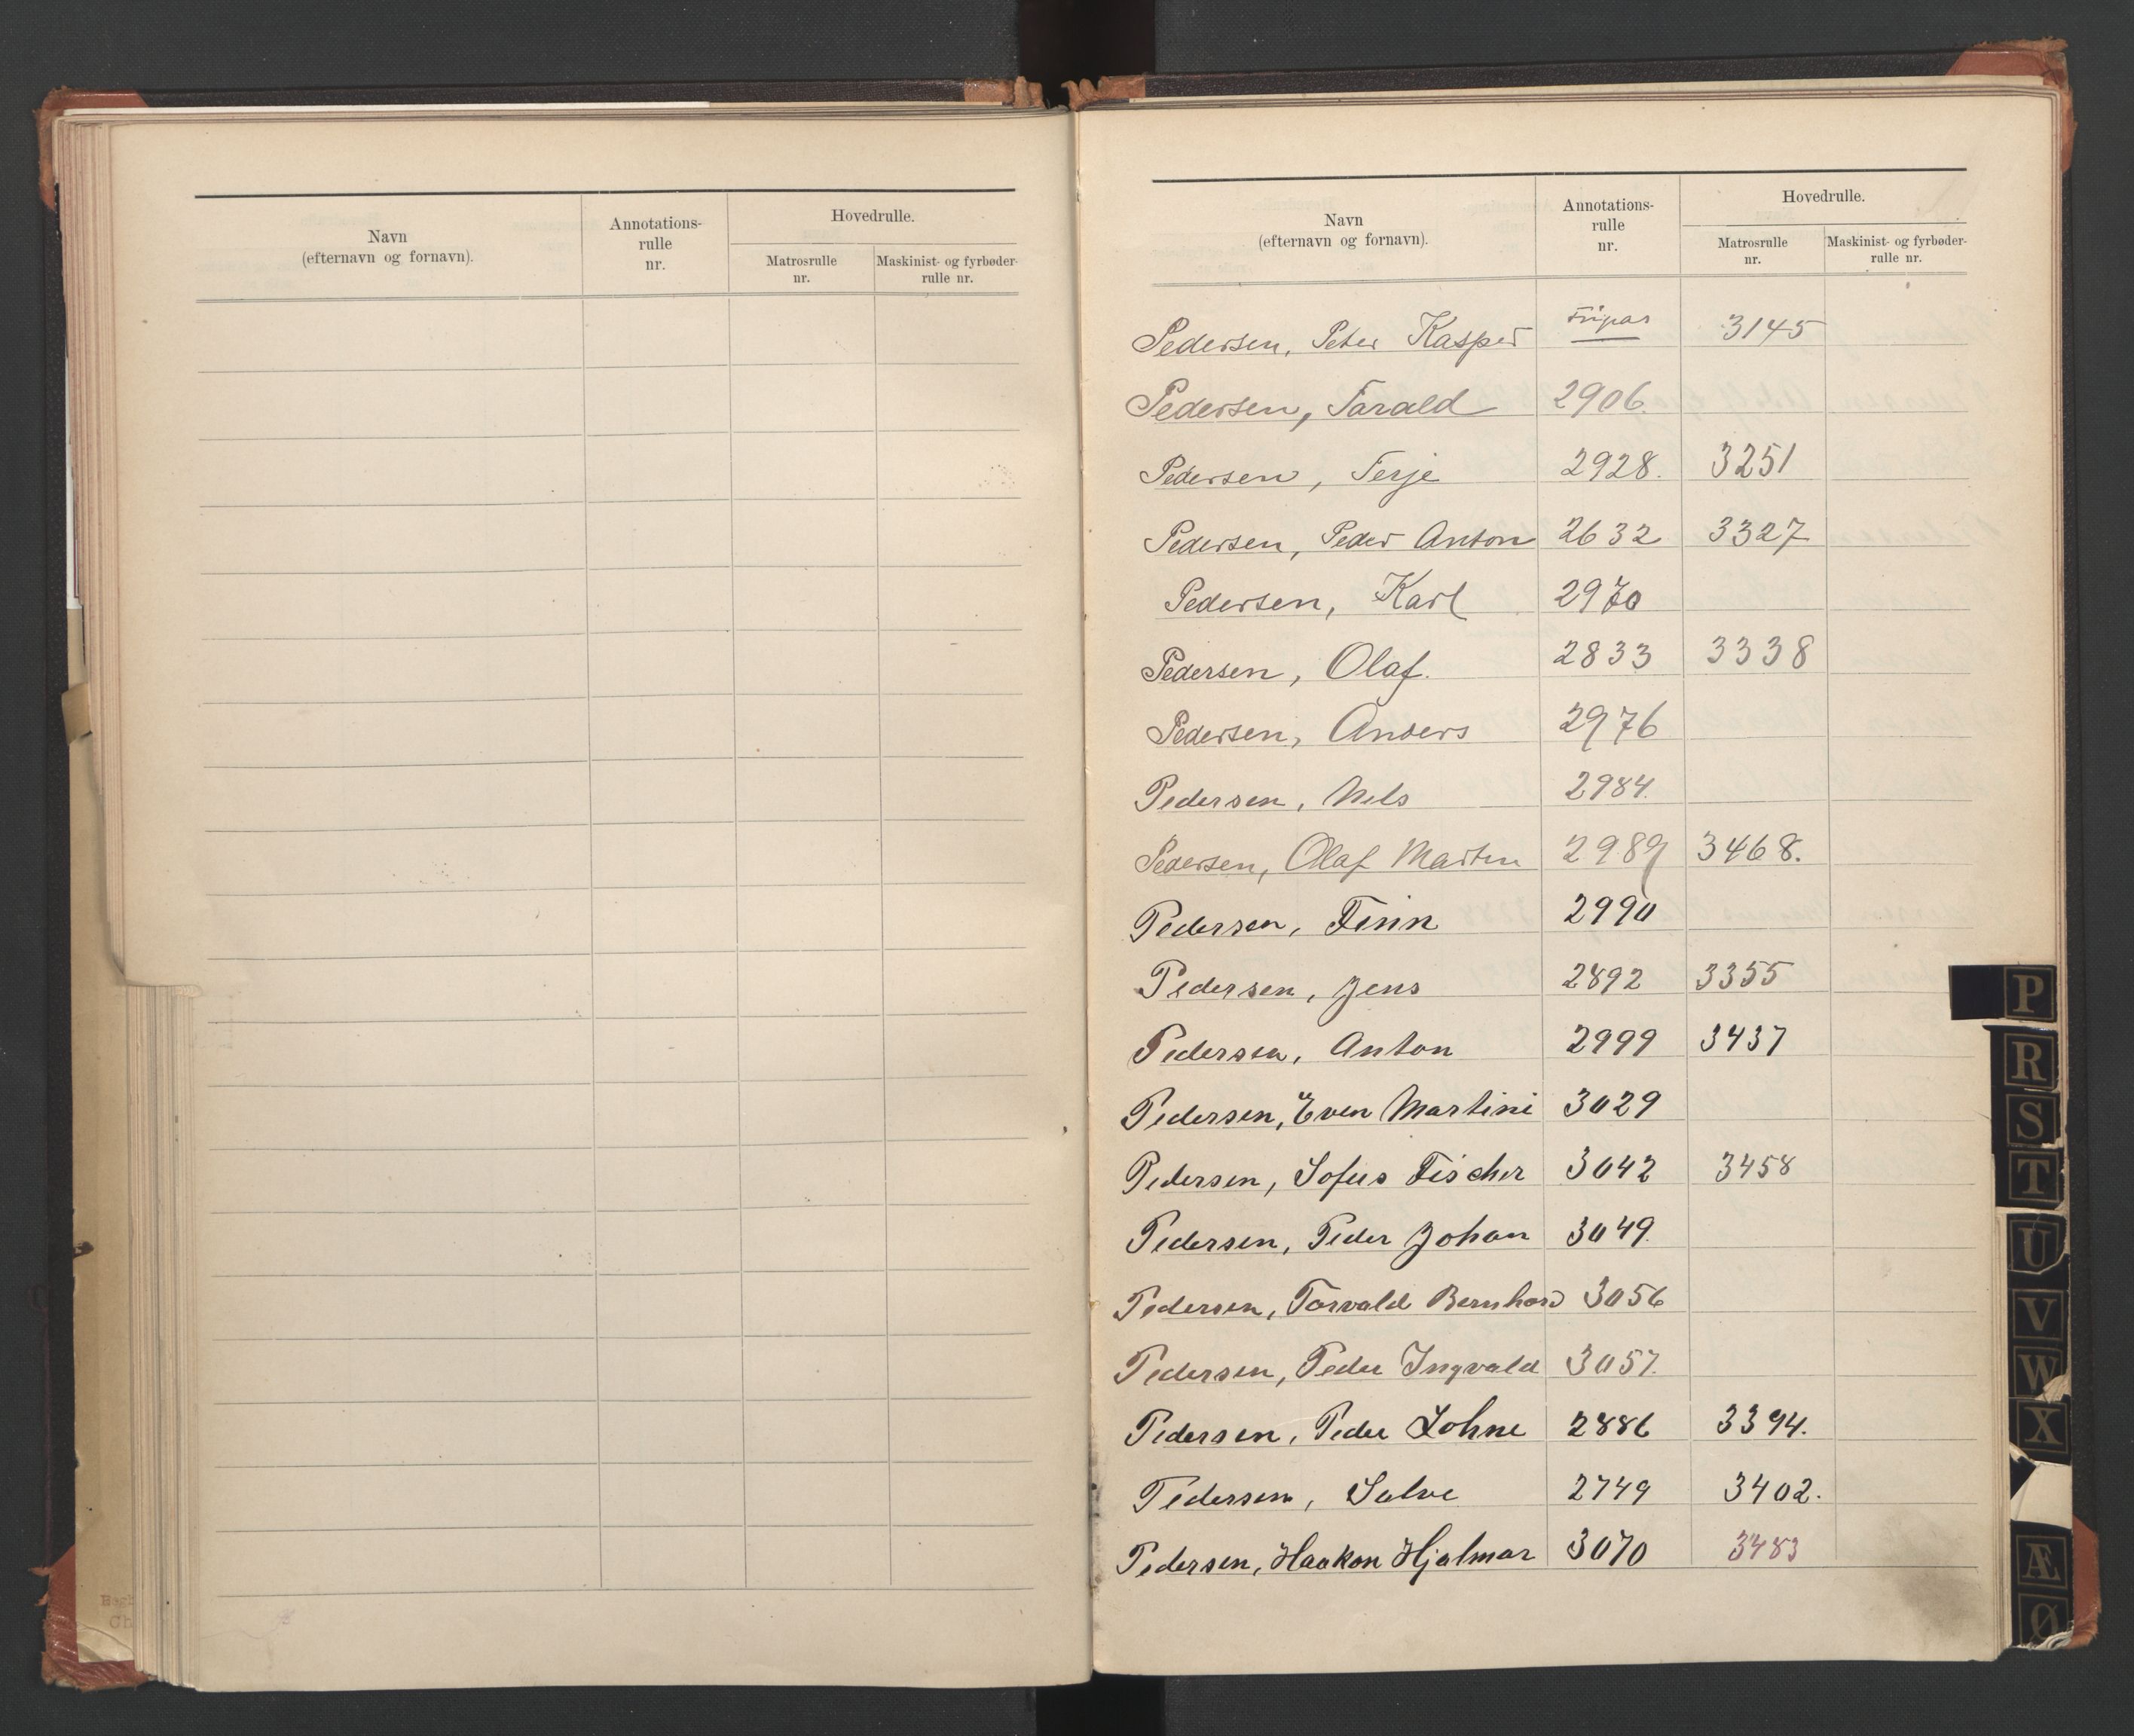 Navn
(efternavn og fornavn).
Annotations-
rulle
nr.
Hovedrulle.
Matrosrulle
nr.
Maskinist- og fyrbøder-
rulle nr.
Navn
(efternavn og fornavn).
Annotations-
rulle
nr.
Hovedrulle.
Matrosrulle
nr.
Maskinist- og fyrbøder-
rulle nr.
Pedersen, Peter Kasper 3145
Pedersen, Tarald 2906.
Pedersen, Terje 2928. 3251
Pedersen, Peder Anton 2632 3327
Pedersen, Karl 2970
Pedersen, Olaf. 2833 3338
Pedersen, Anders 2976
Pedersen, Nels 2984.
Pedersen, Olaf Martin 2989 3468.
Pedersen, Finn 2990
Pedersen, Jens 2892 3355
Pedersen, Anton 2999 3437
Pedersen, Even Martini 3029
Pedersen, Sofus Fischer 3042 3458
Pedersen, Peder Johan 3049.
Pedersen, Torvald Bernhard 3056
Pedersen, Peder Ingvald 3057.
Pedersen, Peder Lohne 2886 3394.
Pedersen, Salve 2749 3402.
Pedersen, Haakon Hjalmar 3070 3483
P
R
S
T
U
V
W
X
Æ
Ø